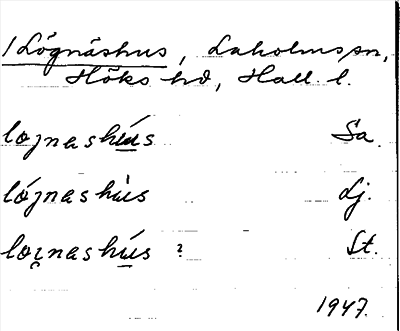 / Lögnäshus, Laholms sn,
Höks hd, Hall. l.
lo̢jnashú̲s Sa.
lójnashùs Lj.
loi̢nashú̲s ? St.
1947.